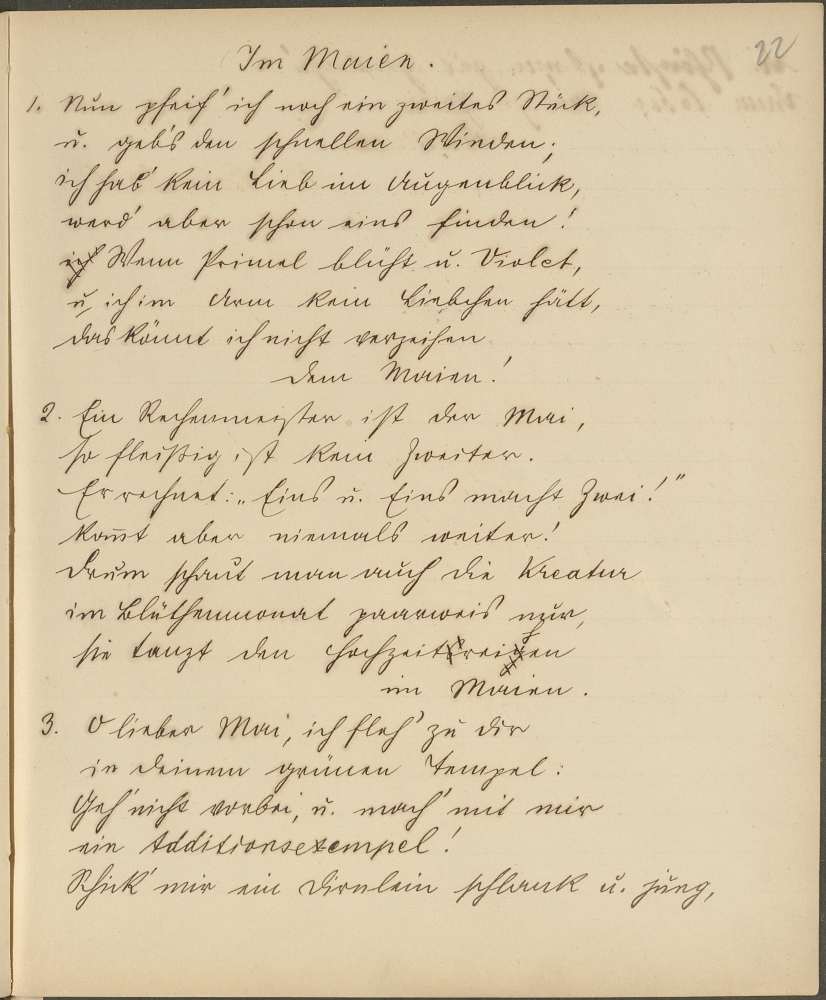 22
Im Maien.
1. Nun pfeif' ich noch ein zweites Stück,
u. geb's den schnellen Winden;
ich hab' kein Lieb im Augenblick,
werd' aber schon eins finden!
Wenn Primel blüht u. Violet,
u. ich im Arm kein Liebchen hätt,
das könnt ich nicht verzeihen
dem Maien!
2. Ein Rechenmeister ist der Mai,
so fleißig ist kein Zweiter.
Er rechnet: „Eins u. Eins macht Zwei!"
kom̅t aber niemals weiter!
Drum schaut man auch die Kreatur
im Blüthenmonat paarweis nur,
sie tanzt den Hochzeitreihen
im Maien.
3. O lieber Mai, ich fleh' zu dir
in deinem grünen Tempel:
Geh' nicht vorbei, u. mach' mit mir
ein Additionsexempel!
Schick' mir ein Dirnlein schlank u. jung,